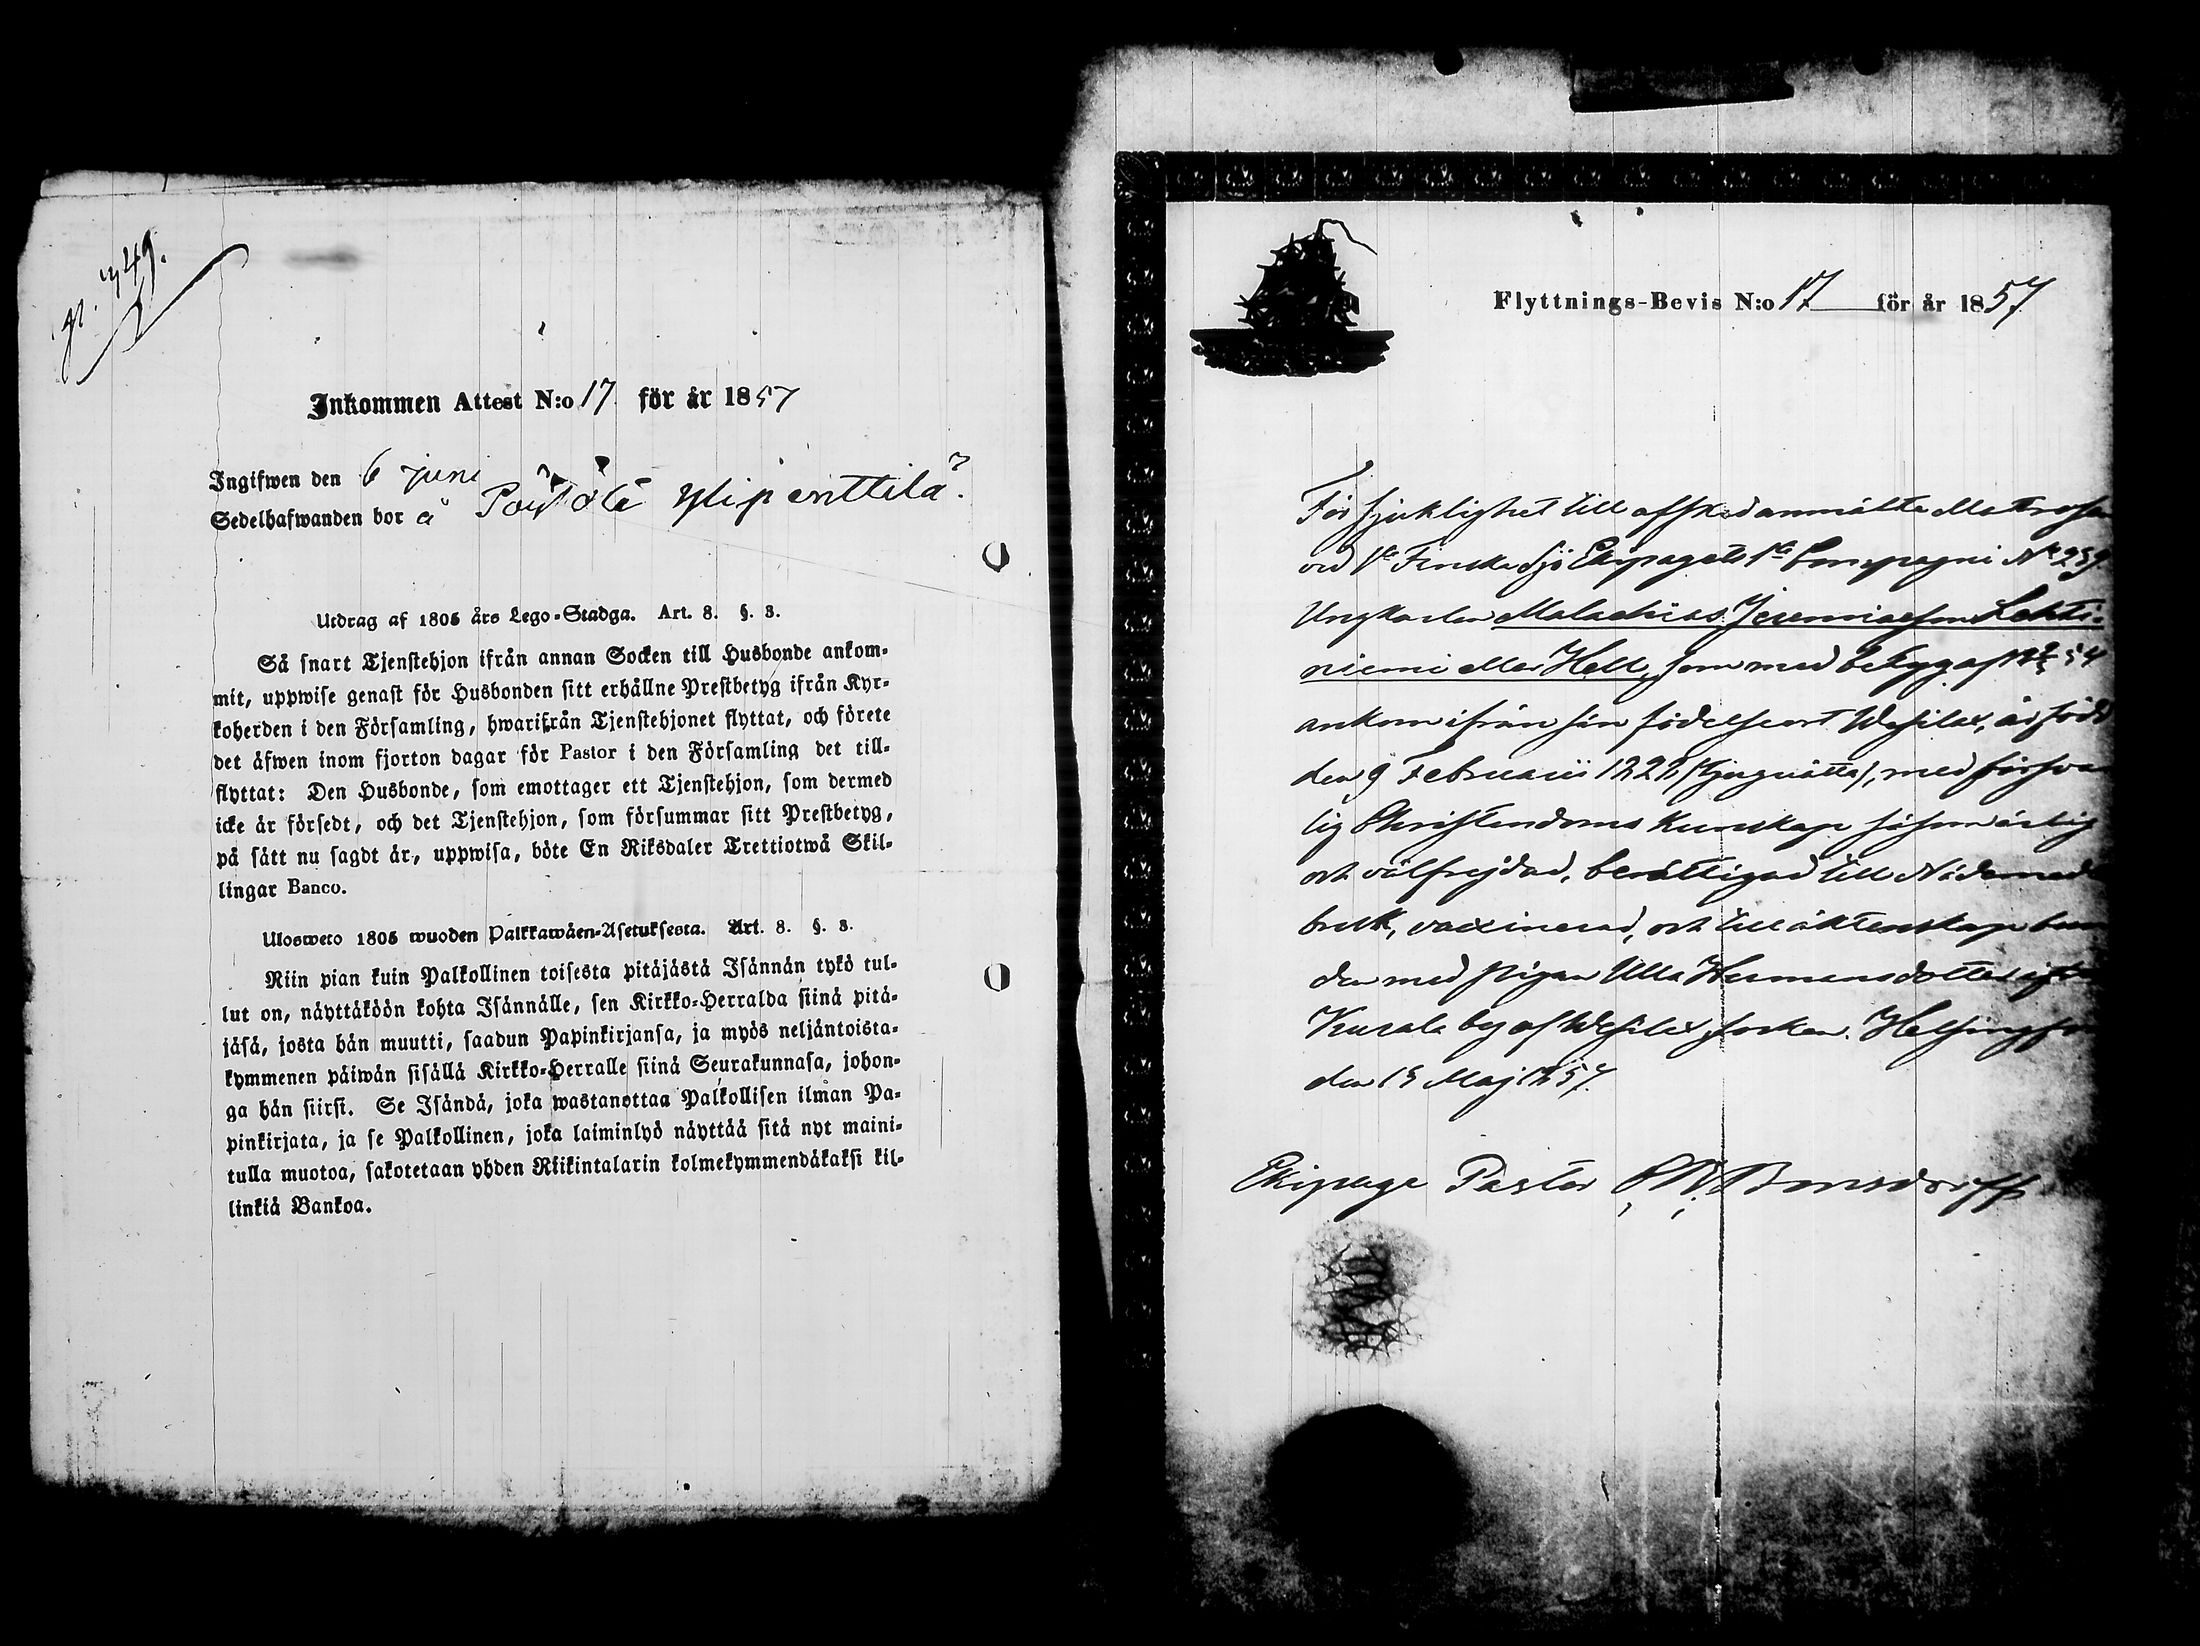 Inkommen Attest N:o 17 för år 1857
Ingifwen den 6 juni
Sedelhafwanden bor å Ylipenttilä.
Utdrag af 1805 års Lego-Stadga. Art. 8. §. 3.
Så snart Tjenstehjon ifrån annan Socken till Husbonde ankom-
mit, uppwise genast för Husbonden sitt erhållne Prestbetyg ifrån Kyr-
koherden i den Församling, hwarifrån Tjenstehjonet flyttat, och förete
det äfwen inom fjorton dagar för Pastor i den Församling det till-
flyttat: Den Husbonde, som emottager ett Tjenstehjon, som dermed
icke är försedt, och det Tjenstehjon, som försummar sitt Prestbetyg,
på sätt nu sagdt är, uppwisa, böte En Riksdaler Trettiotwå Skil-
lingar Banco.
Ulosweto 1805 wuoden Palkkawäen-Asetuksesta. Art. 8. §. 3.
Niin pian kuin Palkollinen toisesta pitäjästä Isännän tykö tul-
lut on, näyttäköön kohta Isännälle, sen Kirkko-Herralda siinä pitä-
jäsä, josta hän muutti, saadun Papinkirjansa, ja myös neljäntoista-
kymmenen päiwän sisällä Kirkko-Herralle siinä Seurakunnasa, johon-
ga hän siirsi. Se Isändä, joka wastanottaa Palkollisen ilman Pa-
pinkirjata, ja se Palkollinen, joka laiminlyö näyttää sitä nyt maini-
tulla muotoa, sakotetaan yhden Riikintalarin kolmekymmendäkaksi kil-
linkiä Bankoa.
Flyttnings-Bevis N:o 17 för år 1857
För sjuklighet till afsked anmälte Matrosen
vid 1a Finska Sjö Ekipagets 1a Compagni No 239
Ungkarlen Malachias Jeremiaeson Lehti-
niemi eller Hell, som med betyg af 54
ankom ifrån sin födelseort Wesilax, är född
den 9 Februarii 1828 (tjuguåtta), med försva
lig Christendoms Kunskap såsom ärlig
och välfrejdad, berättigad till Nådemedl
bruk, vaxinerad, och till äktenskap bun
den med pigan Ulla Hermansdotter ifrån
Kurala by af Wesilax socken. Helsingfor
den 19 Maj 1857.
Ekipage Pastor Bonsdorff